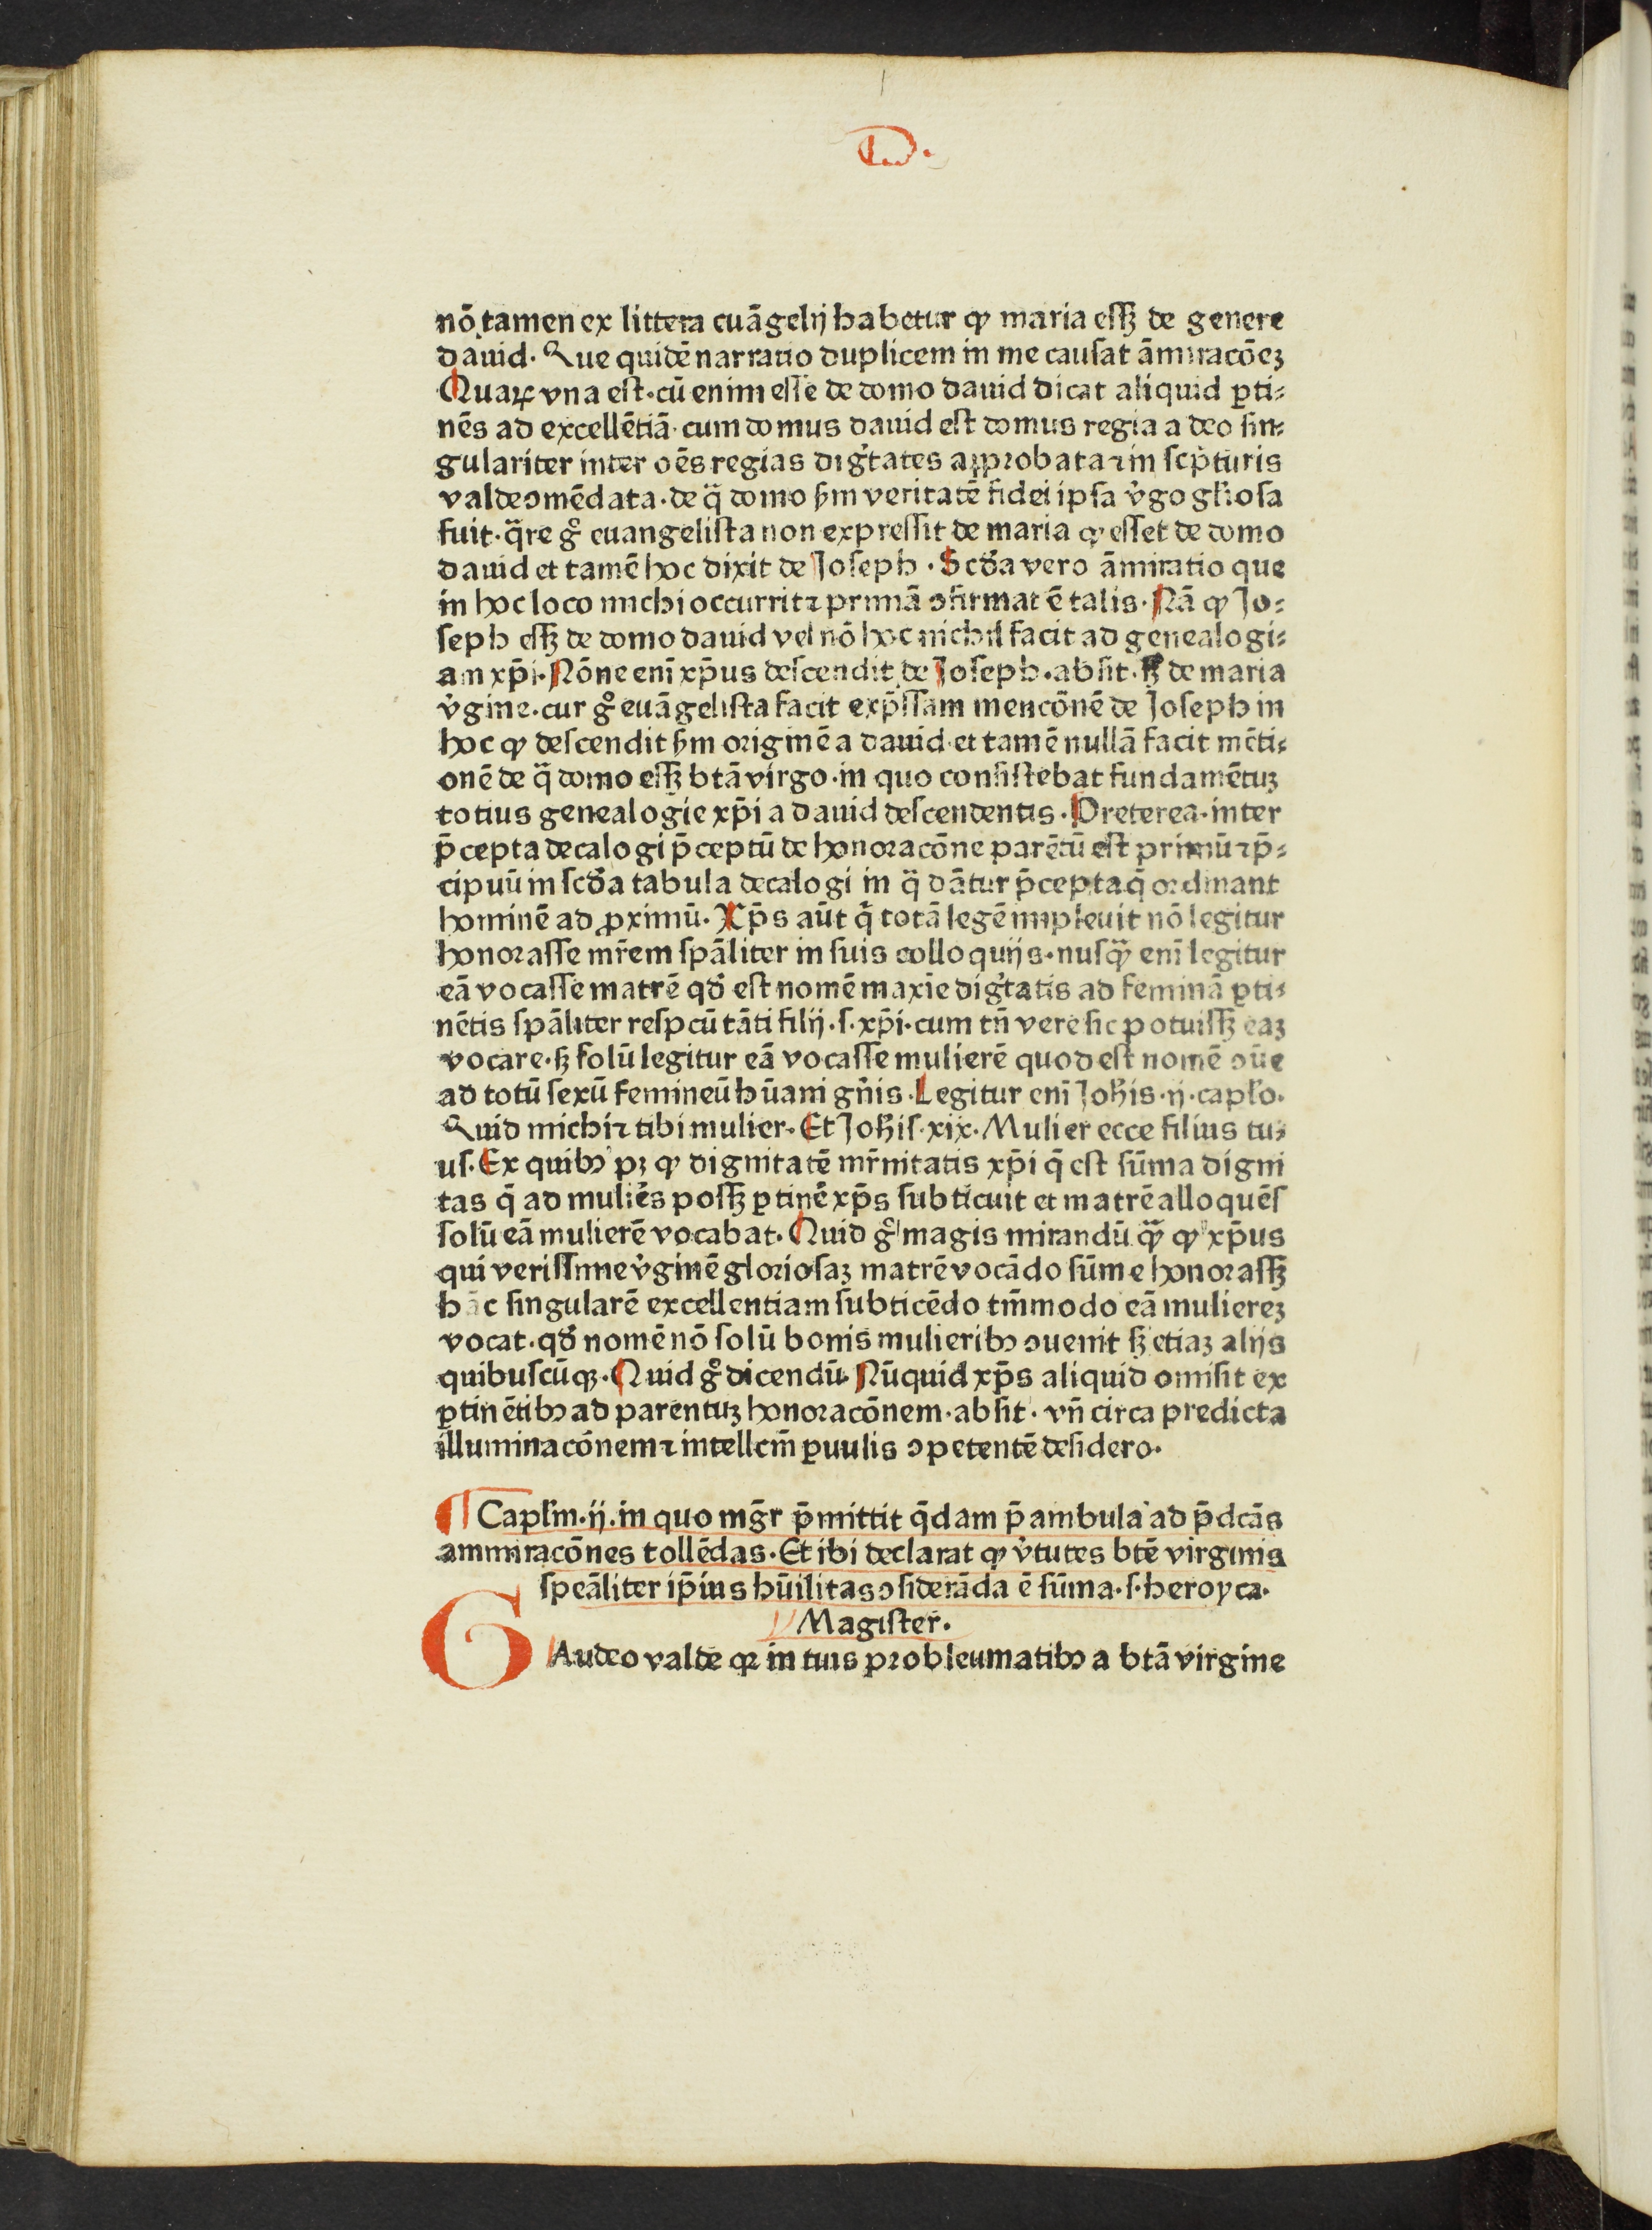 D.
nō tamen ex littera euāgelij habetur ꝙ maria eſſꝫ de genere
dauid. Que quidē narratio duplicem in me cauſat āmiracōeꝫ
Quaꝝ vna eſt. cū enim eſſe de domo dauid dicat aliquid ꝑti⸗
nēs ad excellētiā. cum domus dauid eſt domus regia a deo ſin⸗
gulariter inter oēs regias digtates approbata ⁊ in ſcpturis
valde ↄmēdata. de q̄ domo ẜm veritatē fidei ipſa v̓go glioſa
fuit. q̄re gͦ euangeliſta non expreſſit de maria ꝙ eſſet de domo
dauid et tamē hoc dixit de Joſeph. Scd̓a vero āmiratio que
in hoc loco michi occurrit ⁊ primā ↄfirmat ē talis. Nā ꝙ Jo⸗
ſeph eſſꝫ de domo dauid vel nō hoc nichil facit ad genealogi⸗
am xp̄i. Nōne eni̅ xp̄us deſcendit de Joſeph. abſit. ſꝫ de maria
v̓gine. cur gͦ euāgeliſta facit exp̄ſſam mencōnē de Joſeph in
hoc ꝙ deſcendit ẜm originē a dauid et tamē nullā facit mēti⸗
onē de q̄ domo eſſꝫ btā virgo. in quo conſiſtebat fundamētuꝫ
totius genealogie xp̄i a dauid deſcendentis. Preterea. inter
p̄cepta decalogi p̄ceptū de honoracōne parētū eſt primū ⁊ p̄⸗
cipuū in ſcd̓a tabula decalogi in q̄ dātur p̄cepta q̄ ordinant
hominē ad ꝓximū. Xp̄s aūt q̄ totā legē impleuit nō legitur
honoraſſe mr̄em ſpāliter in ſuis colloquijs. nuſqꝫ̄ eni̅ legitur
eā vocaſſe matrē qd̓ eſt nomē maxīe digtatis ad feminā ꝑti⸗
nētis ſpāliter reſpcū tāti filij. ſ. xp̄i. cum tn̄ vere ſic potuiſſꝫ eaꝫ
vocare. ſꝫ ſolū legitur eā vocaſſe mulierē quod eſt nomē ↄūe
ad totū ſexū femineū hūani gn̄is. Legitur eni̅ Joh̄is. ij. caplo.
Quid michi ⁊ tibi mulier. Et Joh̄iſ. xix. Mulier ecce filius tu⸗
uſ. Ex quibꝰ pꝫ ꝙ dignitatē mr̄nitatis xp̄i q̄ eſt ſūma digni
tas q̄ ad mulie̓s poſſꝫ ꝑtinē xp̄s ſubticuit et matrē alloquēſ
ſolū eā mulierē vocabat. Quid gͦ magis mirandū qꝫ̄ ꝙ xp̄us
qui veriſſime v̓ginē glorioſaꝫ matrē vocādo ſūme honoraſſꝫ
hāc ſingularē excellentiam ſubticēdo tm̄modo eā muliereꝫ
vocat. qd̓ nomē nō ſolū bonis mulieribꝰ ↄuenit ſꝫ etiaꝫ alijs
quibuſcūqꝫ. Quid gͦ dicendū. Nūquid xp̄s aliquid omiſit ex
ꝑtinētibꝰ ad parentuꝫ honoracōnem. abſit. vn̄ circa predicta
illuminacōnem ⁊ intellcm̄ ꝑuulis ↄpetentē deſidero.
¶ Caplm. ij. in quo mgr̄ p̄mittit q̄dam p̄ambula ad p̄dcās
ammiracōnes tollēdas. Et ibi declarat ꝙ v̓tutes btē virginis
ſpeāliter ip̄ius hūilitas ↄſiderāda ē ſūma. ſ. heroyca.
Magiſter.
GAudeo valde qꝛ in tuis probleumatibꝰ a btā virgine